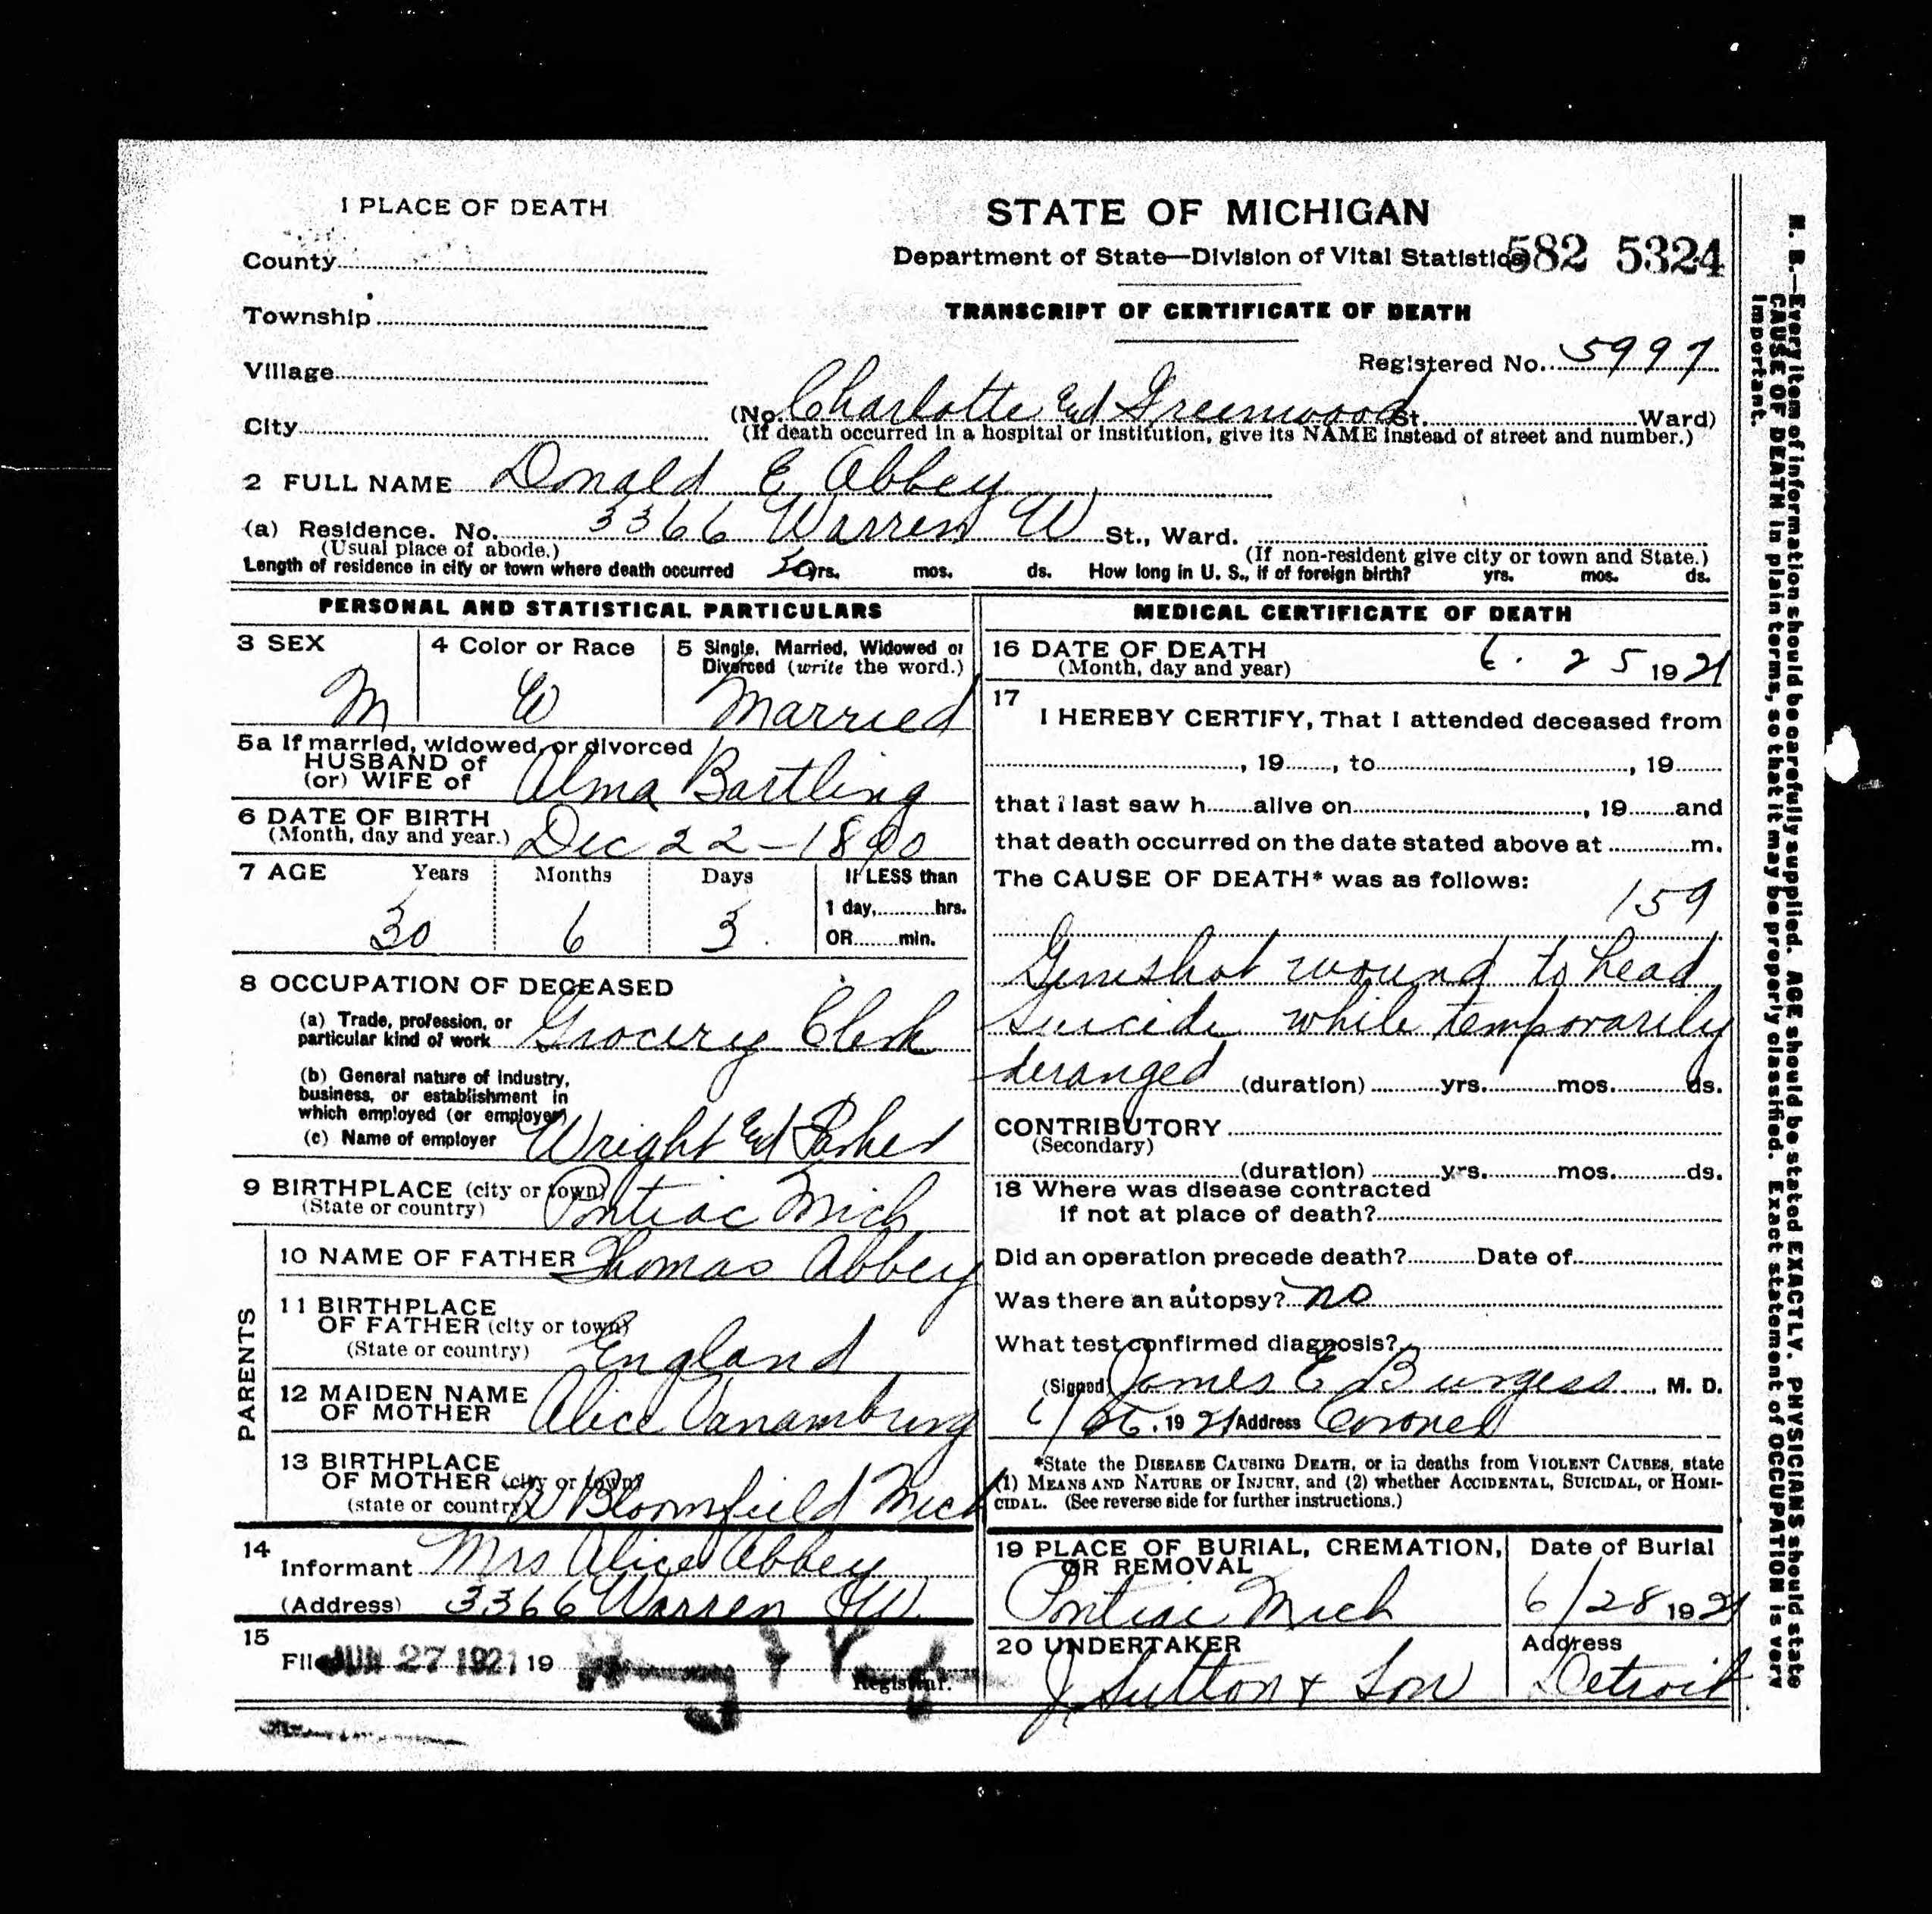 1 PLACE OF DEATH
STATE OF MICHIGAN
Department of State—Division of Vital Statistics
582 5324
County
Township
TRANSCRIPT OF CERTIFICATE OF DEATH
Village
Registered No. 5997
City
(No. Charlotte and Greenwood St. Ward)
(If death occurred in a hospital or institution, give its NAME instead of street and number.)
2 FULL NAME Donald E Abbey
(a) Residence. No. 3366 Warren W St., Ward.
(Usual place of abode.) (If non-resident give city or town and State.)
Length of residence in city or town where death occurred yrs. mos. ds. How long in U. S., if of foreign birth? yrs. mos. ds.
PERSONAL AND STATISTICAL PARTICULARS
3 SEX
M
4 Color or Race
W
5 Single, Married, Widowed or
Divorced (write the word.)
Married
5a If married, widowed, or divorced
HUSBAND of
(or) WIFE of Alma Bartling
6 DATE OF BIRTH
(Month, day and year.) Dec 22-1890
7 AGE Years Months Days
30 6 3
If LESS than
1 day, hrs.
OR min.
8 OCCUPATION OF DECEASED
(a) Trade, profession, or
particular kind of work Grocery Clerk
(b) General nature of industry,
business, or establishment in
which employed (or employer)
(c) Name of employer Wright and Parker
9 BIRTHPLACE (city or town)
(State or country) Pontiac Mich
PARENTS
10 NAME OF FATHER Thomas Abbey
11 BIRTHPLACE
OF FATHER (city or town)
(State or country) England
12 MAIDEN NAME
OF MOTHER Alice Vanamburg
13 BIRTHPLACE
OF MOTHER (city or town)
(state or country) W Bloomfield Mich
14
Informant Mrs Alice Abbey
(Address) 3366 Warren W
15
Filed JUN 27 1921 19
Registrar.
MEDICAL CERTIFICATE OF DEATH
16 DATE OF DEATH
(Month, day and year) 6. 25 1921
17
I HEREBY CERTIFY, That I attended deceased from
, 19 , to , 19
that i last saw h alive on , 19 and
that death occurred on the date stated above at m.
The CAUSE OF DEATH* was as follows:
159
Gunshot wound to head
Suicide while temporarily
deranged (duration) yrs. mos. ds.
CONTRIBUTORY
(Secondary)
(duration) yrs. mos. ds.
18 Where was disease contracted
if not at place of death?
Did an operation precede death? Date of
Was there an autopsy? no
What test confirmed diagnosis?
(Signed) James E Burgess, M. D.
6/26. 1921 Address Coroner
*State the DISEASE CAUSING DEATH, or in deaths from VIOLENT CAUSES, state
(1) MEANS AND NATURE OF INJURY, and (2) whether ACCIDENTAL, SUICIDAL, or HOMI-
CIDAL. (See reverse side for further instructions.)
19 PLACE OF BURIAL, CREMATION,
OR REMOVAL
Pontiac Mich
Date of Burial
6/28 1921
20 UNDERTAKER
J. Sutton & Son
Address
Detroit
N. B.—Every item of information should be carefully supplied. AGE should be stated EXACTLY. PHYSICIANS should state
CAUSE OF DEATH in plain terms, so that it may be properly classified. Exact statement of OCCUPATION is very
important.